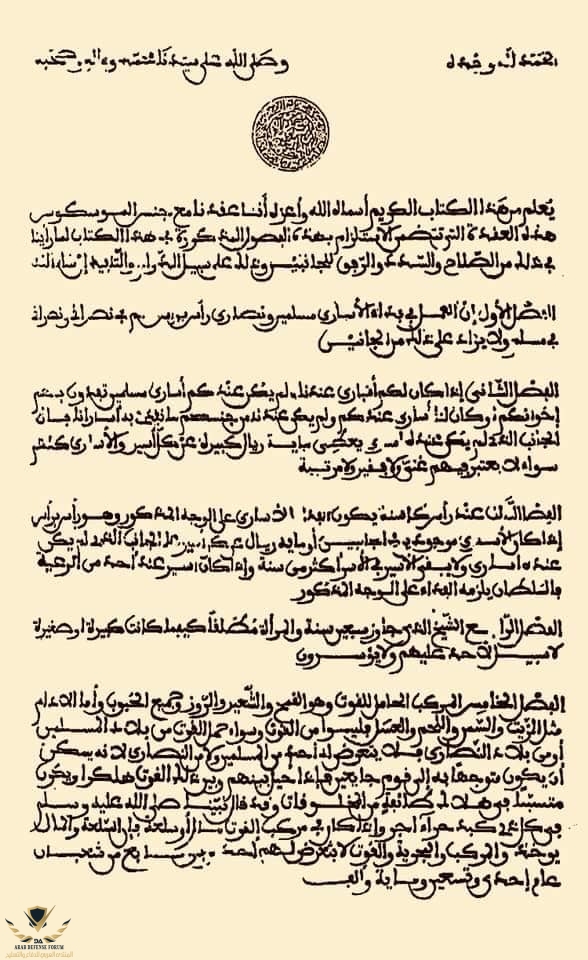 الحمد لله وحده
وصلى الله على سيدنا محمد وءاله وصحبه
يُعلم من هذا الكتاب الكريم أسماه الله وأعزه أننا عقدنا مع جنس الموسكوس
هذه العقدة التي تتضمن الالتزام بهذه الفصول المذكورة في هذا الكتاب لما راينا
في ذلك من الصلاح والسداد والرفق للجانبين وذلك على سبيل والتأبيد إن شاء الله
الفصل الأول إن العمل في فداء الأسارى مسلمين ونصارى رأس برأس في نصراني ونصراني
في مسلم ولا يزاد على ذلك من الجانبين
الفصل الثاني إذا كان لكم أسارى عندنا ولم يكن عندكم أسارى مسلمين تفدون بهم
إخوانكم أو كان لنا أسارى عندكم ولم يكن عندنا من جنسكم ما نفدي به أسارانا فإن
الجانب الذي لم يكن عنده أسرى يعطي ماية ريال كبيرة عن كل أسير والأسارى كلهم
سواء لا يعتبر فيهم غني ولا فقير ولا مرتبة
الفصل الثالث عند رأس كل سنة يكون الأسارى على الوجه المذكور وهو رأس برأس
إذا كان الأسرى موجودين في الجانبين أو ماية ريال عن كل أسير على الجانب الذي لم يكن
عنده أسارى ولا يبقى الأسير في الأسر أكثر من سنة وإذا كان أسير عند أحد من الرعية
فالسلطان يلزمه الفداء على الوجه المذكور
الفصل الرابع الشيخ الذي جاوز سبعين سنة والمرأة مُطلقاً كيفما كانت كبيرة أو صغيرة
لا سبيل لأحد عليهم ولا يؤسرون
الفصل الخامس المركب الحامل للقوت وهو القمح والشعير والروز وجميع الحبوب وأما الادام
مثل الزيت والسمن واللحم والعسل فليسوا من القوت وسواء حمل القوت من بلاد المسلمين
أو من بلاد النصارى فلا يتعرض له أحد من المسلمين ولا من النصارى لأنه يمكن
أن يكون متوجها به إلى قوم جايعين فإذا حيل بينهم وبين ذلك القوت هلكوا ويكون
متسببا في هلاك طائفة من المخلوقات وقد قال نبينا صلى الله عليه وسلم
في كل ذي كبد حراء أجر وإذا كان في مركب القوت مال أو سلعة فإن السلعة والمال
يوخذ والمركب والبحرية والقوت لا يتعرض لهم أحد من شعبان
عام إحدى وتسعين وماية وألف
ARAB DEFENSE FORUM